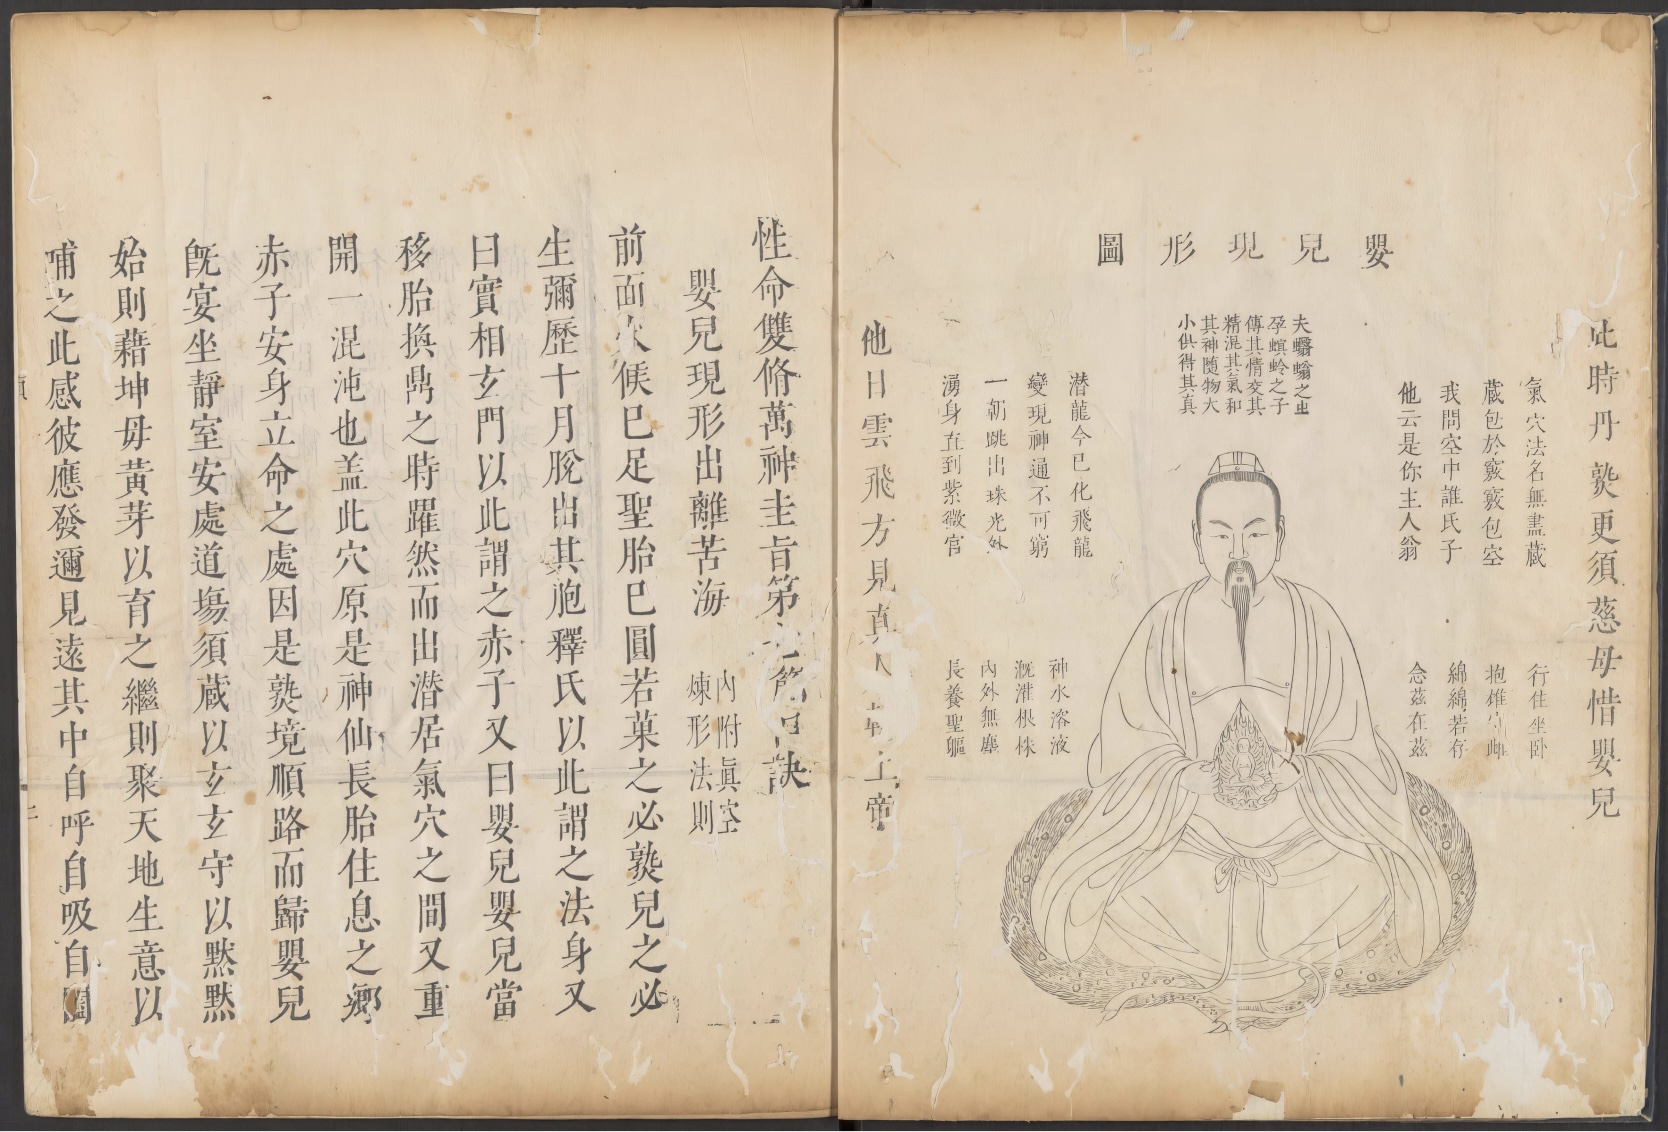 嬰兒現形圖
此時丹熟更須慈母惜嬰兒
氣穴法名無盡藏
藏包於竅竅包空
我問空中誰氏子
他云是你主人翁
行住坐卧
抱雄守雌
綿綿若存
念茲在茲
夫蠮螉之虫
孕螟蛉之子
傳其情交其
精混其氣和
其神隨物大
小俱得其真
潜龍今已化飛龍
變現神通不可窮
一朝跳出珠光外
湧身直到紫微宮
神水溶液
溉灌根株
內外無塵
長養聖軀
他日雲飛方見真人朝上帝
性命雙脩萬神圭旨第七節口訣
嬰兒現形出離苦海
內附眞空
煉形法則
前面火候已足聖胎已圓若菓之必熟兒之必
生彌歷十月脫出其胞釋氏以此謂之法身又
曰實相玄門以此謂之赤子又曰嬰兒嬰兒當
移胎換鼎之時躍然而出潜居氣穴之間又重
開一混沌也盖此穴原是神仙長胎住息之鄉
赤子安身立命之處因是熟境順路而歸嬰兒
旣宴坐靜室安處道塲須藏以玄玄守以黙黙
始則藉坤母黃芽以育之繼則聚天地生意以
哺之此感彼應發邇見遠其中自呼自吸自闔